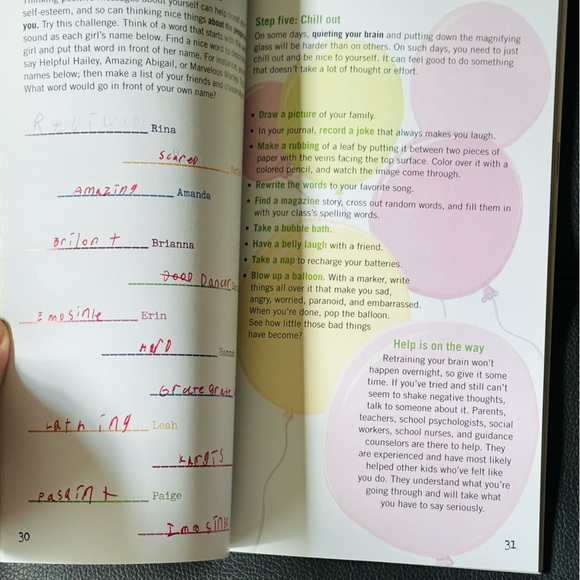 self-esteem, and so can thinking nice things about the people
you. Try this challenge. Think of a word that starts with the
sound as each girl's name below. Find a nice word to
girl and put that word in front of her name. For instance,
say Helpful Hailey, Amazing Abigail, or Marvelous
names below; then make a list of your friends and
What word would go in front of your own name?
Rina
scared
Amazing Amanda
Brilont Brianna
Dancer
Emosinle Erin
Hard
Grate grate
Lathing Leah
Kargis
pasaint Paige
Imosinle
30
Step five: Chill out
On some days, quieting your brain and putting down the magnifying
glass will be harder than on others. On such days, you need to just
chill out and be nice to yourself. It can feel good to do something
that doesn't take a lot of thought or effort.
• Draw a picture of your family.
• In your journal, record a joke that always makes you laugh.
• Make a rubbing of a leaf by putting it between two pieces of
paper with the veins facing the top surface. Color over it with a
colored pencil, and watch the image come through.
• Rewrite the words to your favorite song.
• Find a magazine story, cross out random words, and fill them in
with your class's spelling words.
• Take a bubble bath.
• Have a belly laugh with a friend.
• Take a nap to recharge your batteries.
• Blow up a balloon. With a marker, write
things all over it that make you sad,
angry, worried, paranoid, and embarrassed.
When you're done, pop the balloon.
See how little those bad things
have become?
Help is on the way
Retraining your brain won't
happen overnight, so give it some
time. If you've tried and still can't
seem to shake negative thoughts,
talk to someone about it. Parents,
teachers, school psychologists, social
workers, school nurses, and guidance
counselors are there to help. They
are experienced and have most likely
helped other kids who've felt like
you do. They understand what you're
going through and will take what
you have to say seriously.
31